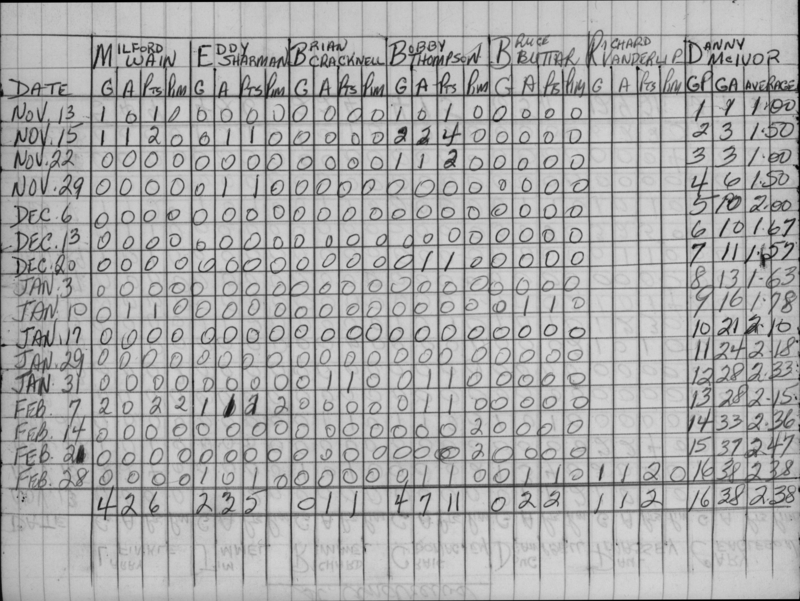 MILFORD WAIN EDDY SHARMAN BRIAN CRACKNELL BOBBY THOMPSON BRUCE BUTTAR RICHARD VANDERLIP DANNY McIVOR
DATE G A Pts Pim G A Pts Pim G A Pts Pim G A Pts Pim G A Pts Pim G A Pts Pim GP GA AVERAGE
NOV. 13 1 0 1 0 0 0 0 0 0 0 0 0 1 0 1 0 0 0 0 0 1 1 1.00
NOV. 15 1 1 2 0 0 1 1 0 0 0 0 0 2 2 4 0 0 0 0 0 2 3 1.50
NOV. 22 0 0 0 0 0 0 0 0 0 0 0 0 1 1 2 0 0 0 0 0 3 3 1.00
NOV. 29 0 0 0 0 0 1 1 0 0 0 0 0 0 0 0 0 0 0 0 0 4 6 1.50
DEC. 6 0 0 0 0 0 0 0 0 0 0 0 0 0 0 0 0 0 0 0 0 5 10 2.00
DEC. 13 0 0 0 0 0 0 0 0 0 0 0 0 0 0 0 0 0 0 0 0 6 10 1.67
DEC. 20 0 0 0 0 0 0 0 0 0 0 0 0 0 1 1 0 0 0 0 0 7 11 1.57
JAN. 3 0 0 0 0 0 0 0 0 0 0 0 0 0 0 0 0 0 0 0 0 8 13 1.63
JAN. 10 0 1 1 0 0 0 0 0 0 0 0 0 0 0 0 0 0 1 1 0 9 16 1.78
JAN. 17 0 0 0 0 0 0 0 0 0 0 0 0 0 0 0 0 0 0 0 0 10 21 2.10
JAN. 29 0 0 0 0 0 0 0 0 0 0 0 0 0 0 0 0 0 0 0 0 11 24 2.18
JAN. 31 0 0 0 0 0 0 0 0 0 1 1 0 0 1 1 0 0 0 0 0 12 28 2.33
FEB. 7 2 0 2 2 1 1 2 2 0 0 0 0 0 1 1 0 0 0 0 0 13 28 2.15
FEB. 14 0 0 0 0 0 0 0 0 0 0 0 0 0 0 0 2 0 0 0 0 14 33 2.36
FEB. 21 0 0 0 0 0 0 0 0 0 0 0 0 0 0 0 2 0 0 0 0 15 37 2.47
FEB. 28 0 0 0 0 1 0 1 0 0 0 0 0 0 1 1 0 0 1 1 0 1 1 2 0 16 38 2.38
4 2 6 2 3 5 0 1 1 4 7 11 0 2 2 1 1 2 16 38 2.38